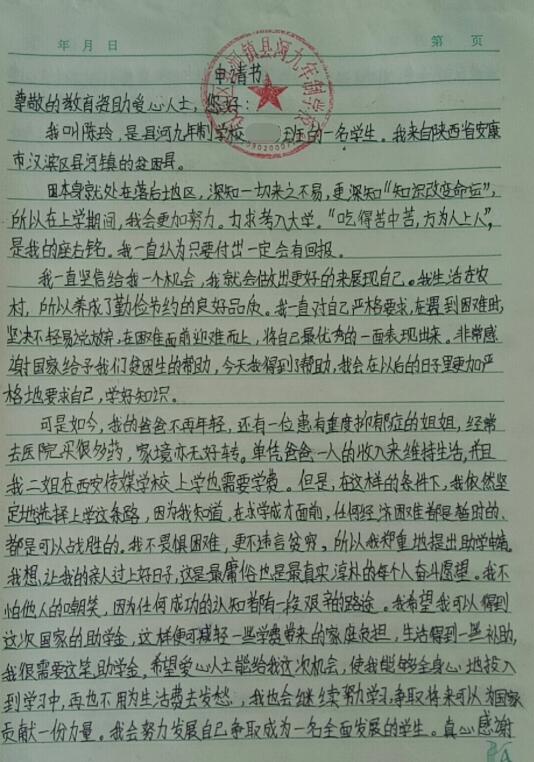 年 月 日 第 页
县河镇县河九年制学校
申请书
尊敬的教育资助爱心人士，您好：
我叫陈玲，是县河九年制学校 班的一名学生。我来自陕西省安康
市汉滨区县河镇的贫困县。
因本身就处在落后地区，深知一切来之不易，更深知“知识改变命运”，
所以在上学期间，我会更加努力。力求考入大学。“吃得苦中苦，方为人上人”，
是我的座右铭。我一直认为只要付出一定会有回报。
我一直坚信给我一个机会，我就会做出更好的来展现自己。我生活在农
村，所以养成了勤俭节约的良好品质。我一直对自己严格要求，在遇到困难时，
坚决不轻易说放弃，在困难面前迎难而上，将自己最优秀的一面表现出来。非常感
谢国家给予我们贫困生的帮助，今天我得到了帮助，我会在以后的日子里更加严
格地要求自己，学好知识。
可是如今，我的爸爸不再年轻，还有一位患有重度抑郁症的姐姐，经常
去医院买很多药，家境亦无好转。单凭爸爸一人的收入来维持生活，并且
我二姐在西安传媒学校上学也需要学费。但是，在这样的条件下，我依然坚
定地选择上学这条路，因为我知道，在求学成才面前，任何经济困难都是暂时的、
都是可以战胜的。我不畏惧困难，更不违言贫穷，所以我郑重地提出助学申请。
我想，让我的亲人过上好日子，这是最庸俗也是最真实淳朴的每个人奋斗愿望。我不
怕他人的嘲笑，因为任何成功的认知都有一段艰辛的路途。我希望我可以得到
这次国家的助学金，这样便可减轻一些学费带来的家庭负担，生活得到一些补助，
我很需要这笔助学金，希望爱心人士能给我这次机会，使我能够全身心地投入
到学习中，再也不用为生活费去发愁，我也会继续努力学习，争取将来可以为国家
贡献一份力量。我会努力发展自己争取成为一名全面发展的学生。真心感谢